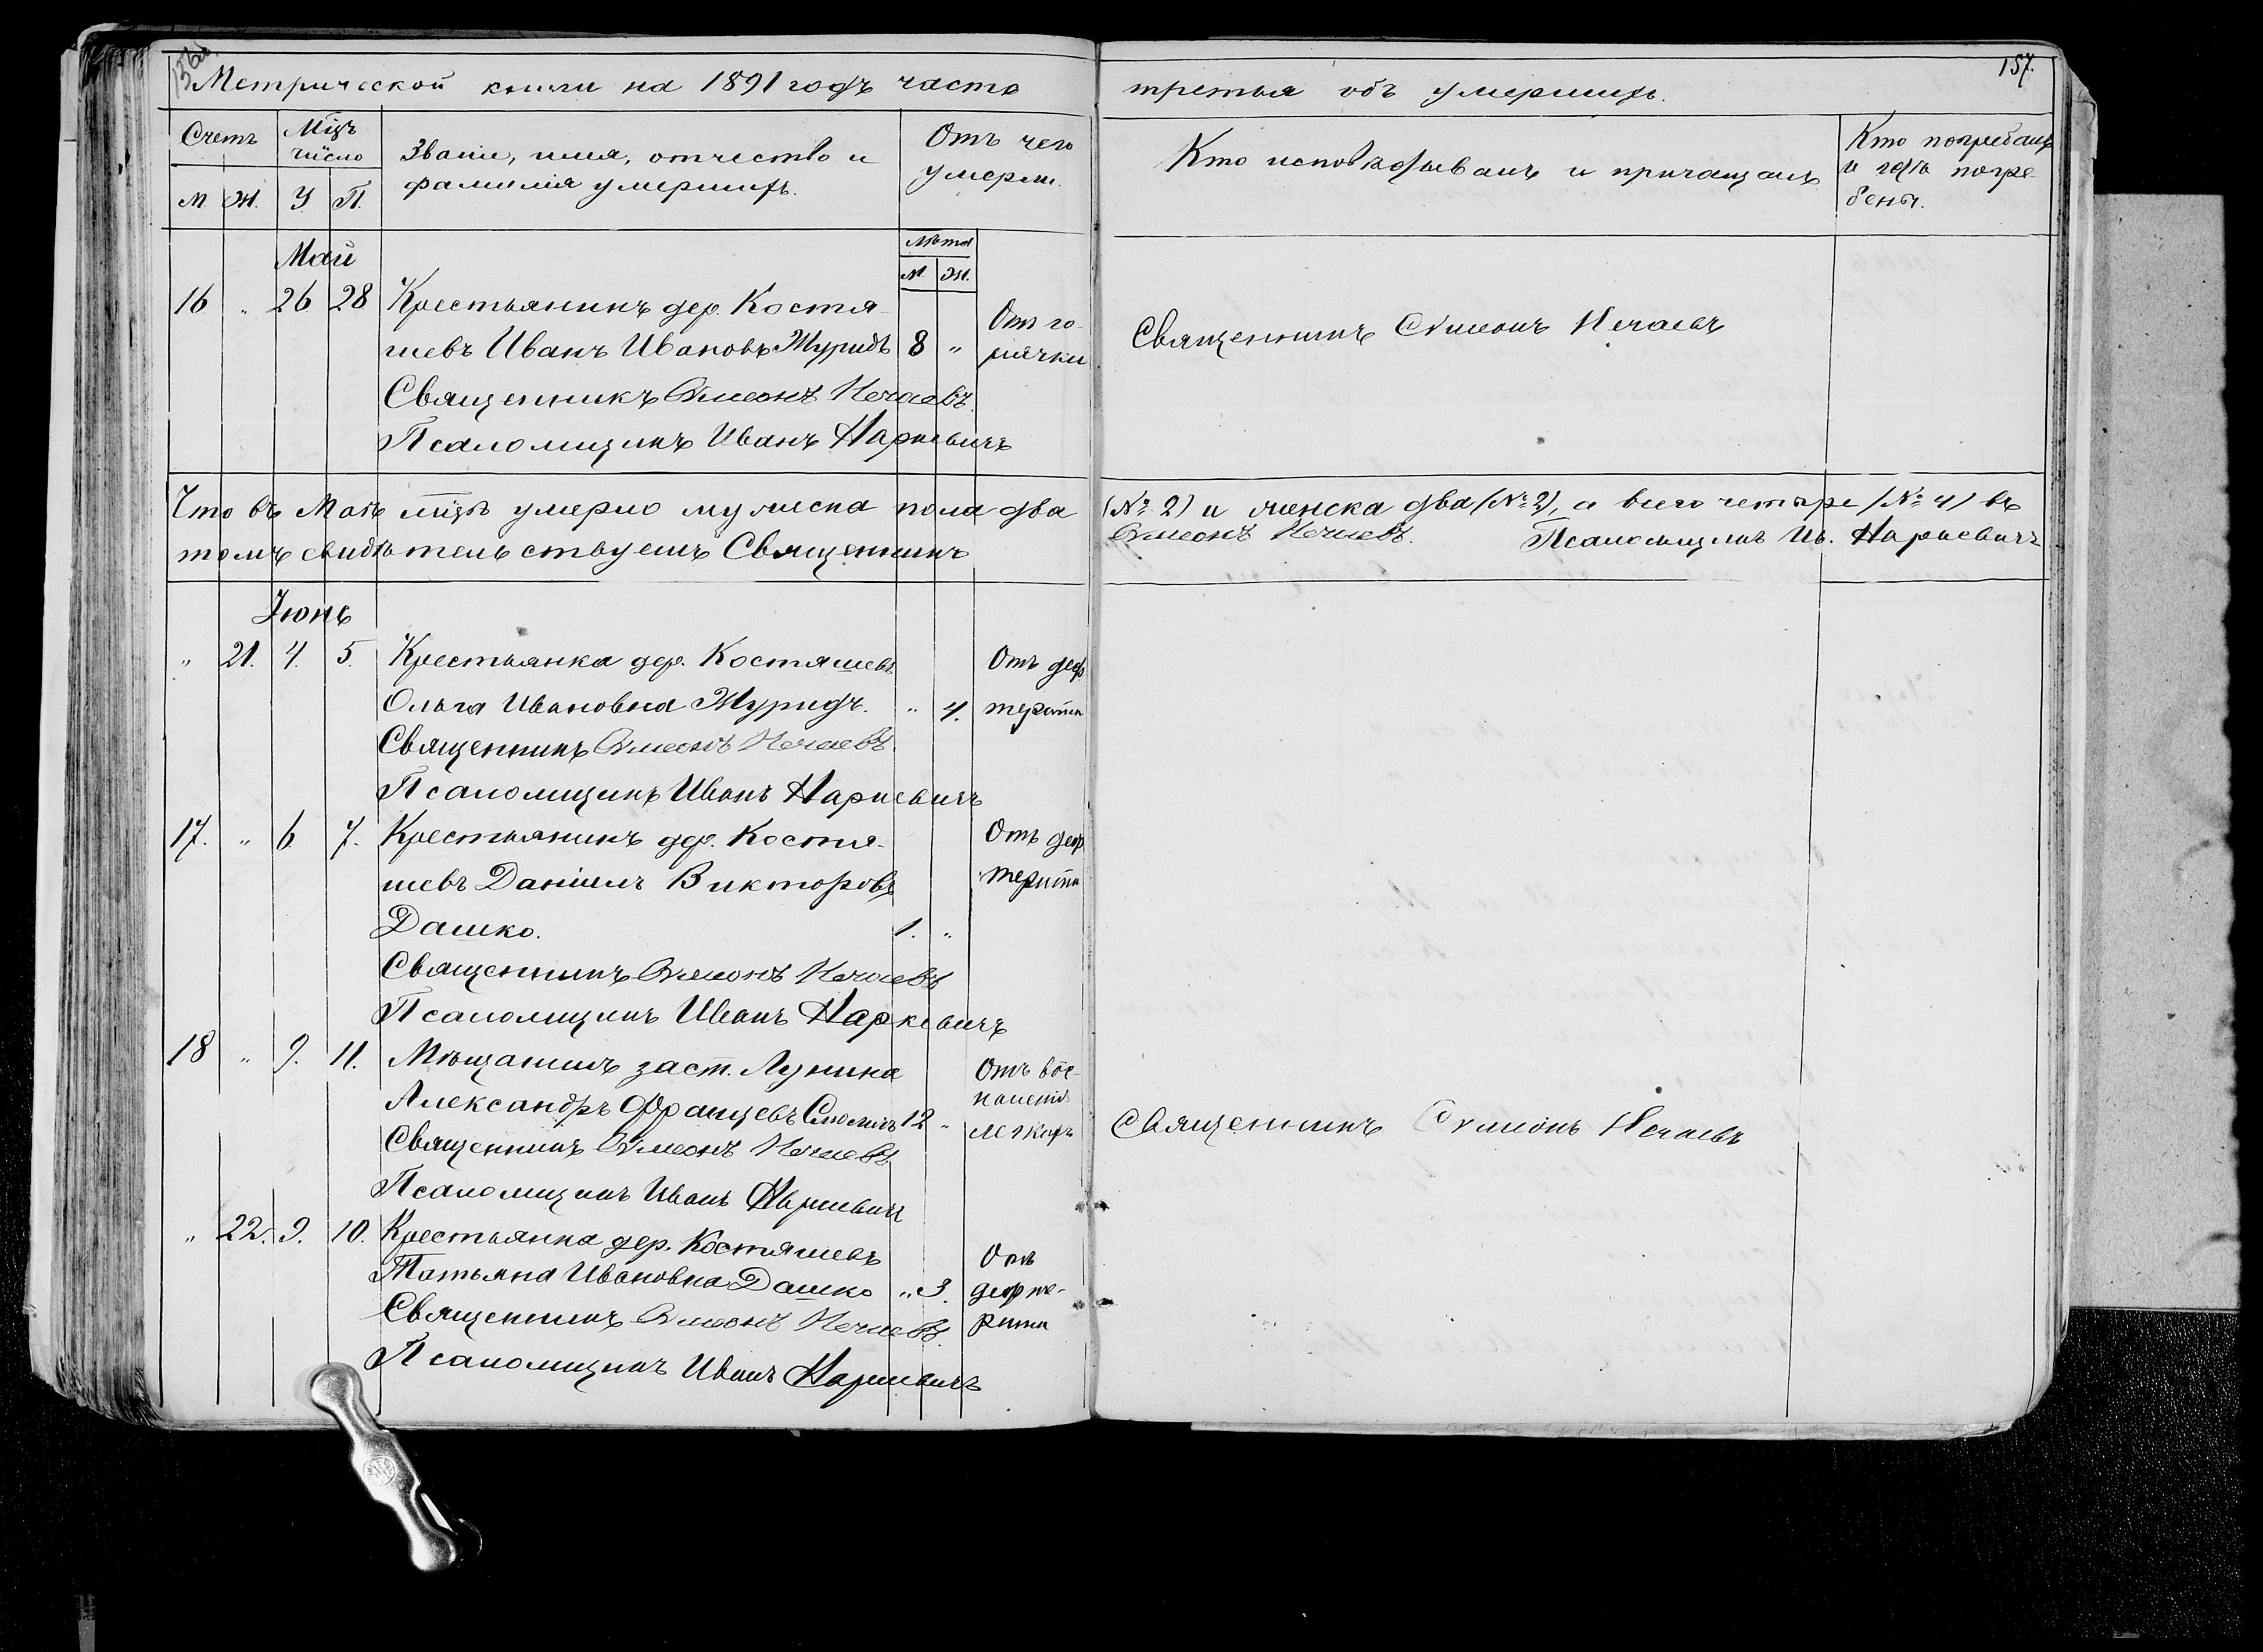 156об.
157.
Метрической книги на 1891 годъ часть
третья объ умершихъ.
Счетъ
М. Ж.
Мѣсць
число
У. П.
Званіе, имя, отчество и
фамилія умершихъ.
Отъ чего
умерли.
Кто исповѣдывалъ и причащалъ
Кто погребалъ
и гдѣ погре-
бены.
Май
Лѣта
М. Ж.
16 „ 26 28 Крестьянинъ дер. Костя-
шевъ Иванъ Ивановъ Журидъ 8 „
Отъ го-
рячки
Священникъ Симеонъ Нечаевъ
Псаломщикъ Иванъ Наркевичъ
Священникъ Сѵмеонъ Нечаевъ
Что въ Маѣ мцѣ умерло мужеска пола два
(№ 2) и женска два (№ 2), а всего четыре (№ 4) въ
томъ свидѣтельствуемъ Священникъ
Симеонъ Нечаевъ. Псаломщикъ Ив. Наркевичъ
Іюнь
„ 21. 4. 5. Крестьянка дер. Костяшевъ
Ольга Ивановна Журидъ. „ 4.
Отъ диф
терита
Священникъ Симеонъ Нечаевъ
Псаломщикъ Иванъ Наркевичъ
17. „ 6. 7. Крестьянинъ дер. Костя-
шевъ Даніилъ Викторовъ
Дашко. 1. „
Отъ диф
терита
Священникъ Симеонъ Нечаевъ
Псаломщикъ Иванъ Наркевичъ
18 „ 9. 11. Мѣщанинъ заст. Лунина
Александръ Францевъ 12 „
Отъ вос-
паленія
легкихъ
Священникъ Симеонъ Нечаевъ
Псаломщикъ Иванъ Наркевичъ
Священникъ Сѵмеонъ Нечаевъ
„ 22. 9. 10. Крестьянка дер. Костяшевъ
Татьяна Ивановна Дашко „ 3.
Отъ
дифте-
рита
Священникъ Симеонъ Нечаевъ
Псаломщикъ Иванъ Наркевичъ